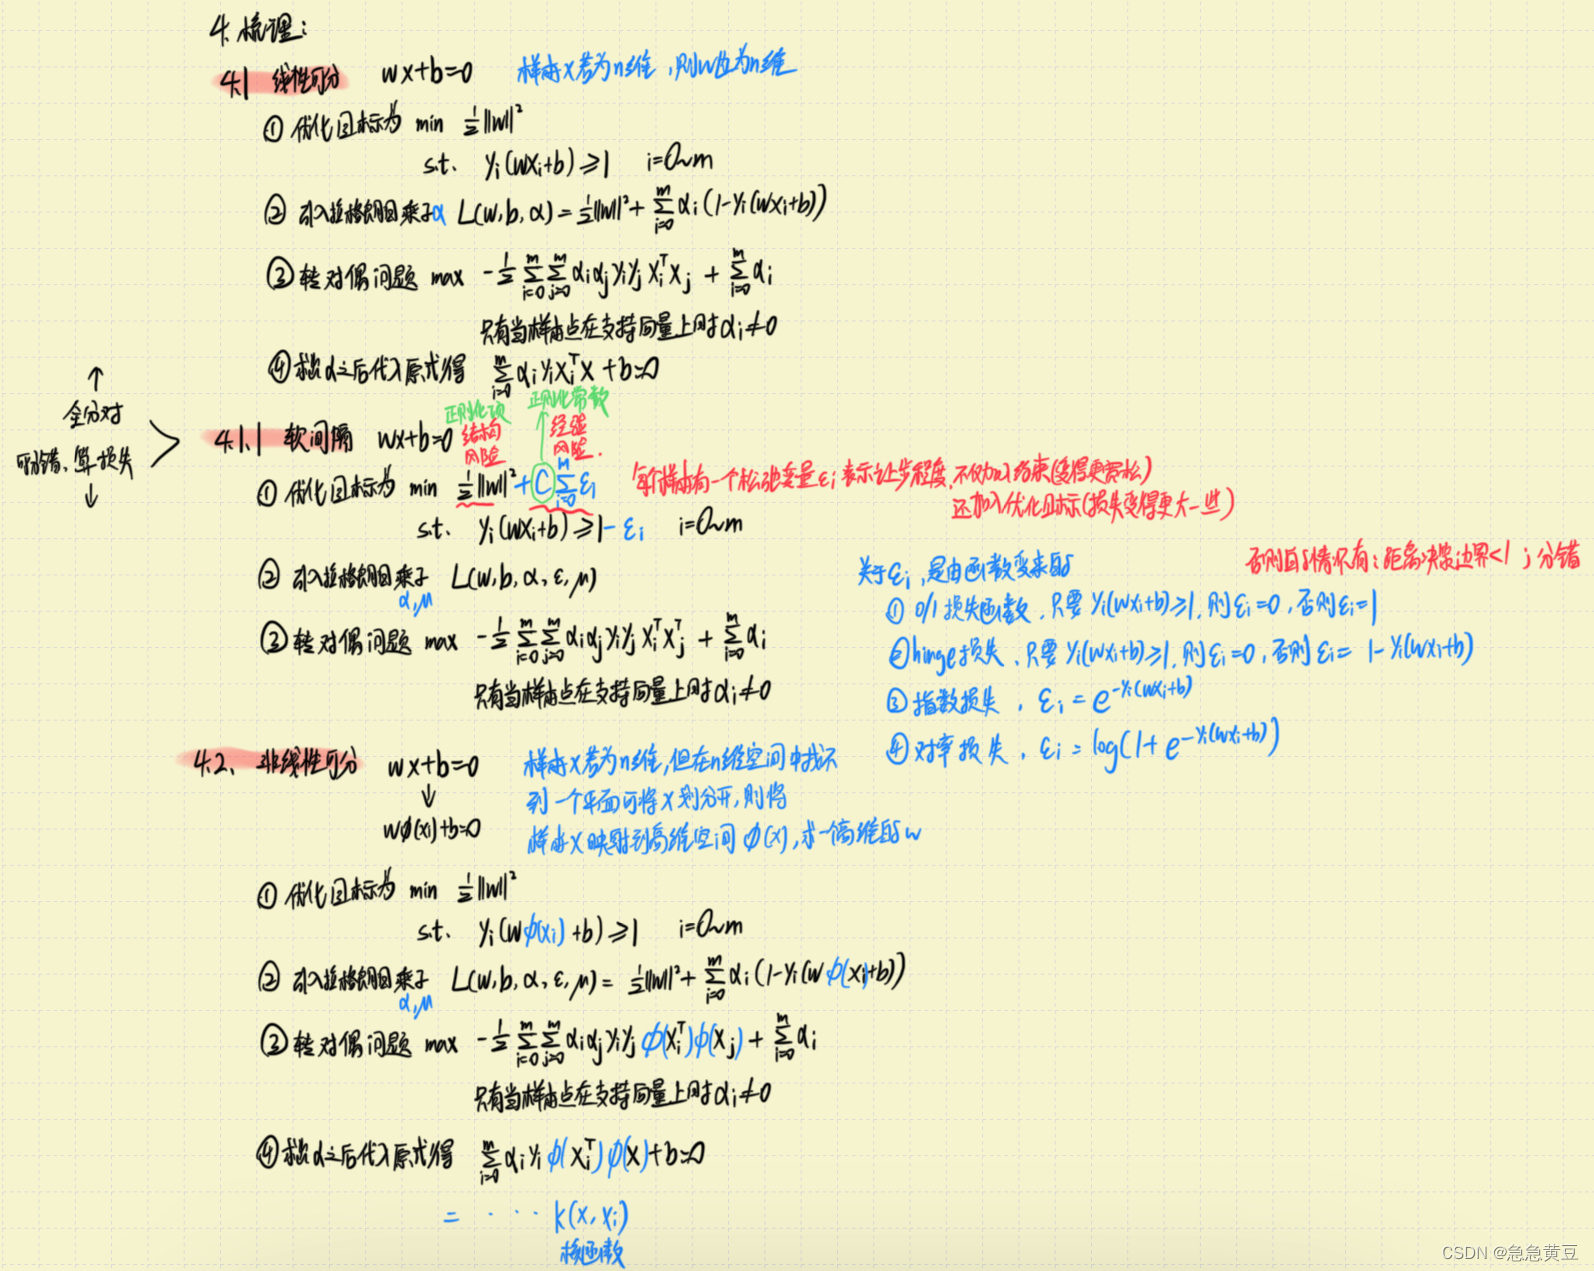 4. 梳理:
4.1 线性可分 wx+b=0 样本x若为n维,则w也为n维
① 优化目标为 min ½||w||²
s.t. yᵢ(wxᵢ+b)⩾1 i=0~m
② 引入拉格朗日乘子α L(w,b,α)=½||w||²+∑ᵢ₌₀ᵐ αᵢ(1-yᵢ(wxᵢ+b))
③ 转对偶问题 max -½∑ᵢ₌₀ᵐ∑ⱼ₌₀ᵐ αᵢαⱼyᵢyⱼxᵢᵀxⱼ + ∑ᵢ₌₀ᵐ αᵢ
只有当样本点在支持向量上时αᵢ≠0
④ 求出α之后代入原式得 ∑ᵢ₌₀ᵐ αᵢyᵢxᵢᵀx+b=0
↑
全分对
可分错、算损失
↓
正则化项 正则化常数
4.1.1 软间隔 wx+b=0 结构风险 经验风险.
① 优化目标为 min ½||w||²+C∑ᵢ₌₀ᵐ εᵢ 每个样本有一个松弛变量εᵢ表示让步程度,不仅加入约束(变得更宽松)
还加入优化目标(损失变得更大一些)
s.t. yᵢ(wxᵢ+b)⩾1-εᵢ i=0~m
② 引入拉格朗日乘子 L(w,b,α,ε,μ)
α,μ
③ 转对偶问题 max -½∑ᵢ₌₀ᵐ∑ⱼ₌₀ᵐ αᵢαⱼyᵢyⱼxᵢᵀxⱼᵀ + ∑ᵢ₌₀ᵐ αᵢ
只有当样本点在支持向量上时αᵢ≠0
关于εᵢ,是由函数变来的 否则的情况有:距离决策边界<1;分错
① 0/1损失函数,只要yᵢ(wxᵢ+b)⩾1,则εᵢ=0,否则εᵢ=1
② hinge损失,只要yᵢ(wxᵢ+b)⩾1,则εᵢ=0,否则εᵢ=1-yᵢ(wxᵢ+b)
③ 指数损失,εᵢ=e^(-yᵢ(wxᵢ+b))
④ 对率损失,εᵢ=log(1+e^(-yᵢ(wxᵢ+b)))
4.2、非线性可分 wx+b=0 样本x若为n维,但在n维空间中找不
↓ 到一个平面可将x划分开,则将
wφ(xᵢ)+b=0 样本x映射到高维空间φ(x),求一高维的w
① 优化目标为 min ½||w||²
s.t. yᵢ(wφ(xᵢ)+b)⩾1 i=0~m
② 引入拉格朗日乘子 L(w,b,α,ε,μ)=½||w||²+∑ᵢ₌₀ᵐ αᵢ(1-yᵢ(wφ(xᵢ)+b))
α,μ
③ 转对偶问题 max -½∑ᵢ₌₀ᵐ∑ⱼ₌₀ᵐ αᵢαⱼyᵢyⱼφ(xᵢᵀ)φ(xⱼ) + ∑ᵢ₌₀ᵐ αᵢ
只有当样本点在支持向量上时αᵢ≠0
④ 求出α之后代入原式得 ∑ᵢ₌₀ᵐ αᵢyᵢφ(xᵢᵀ)φ(x)+b=0
= · · · k(x,xᵢ)
核函数
CSDN @急急黄豆